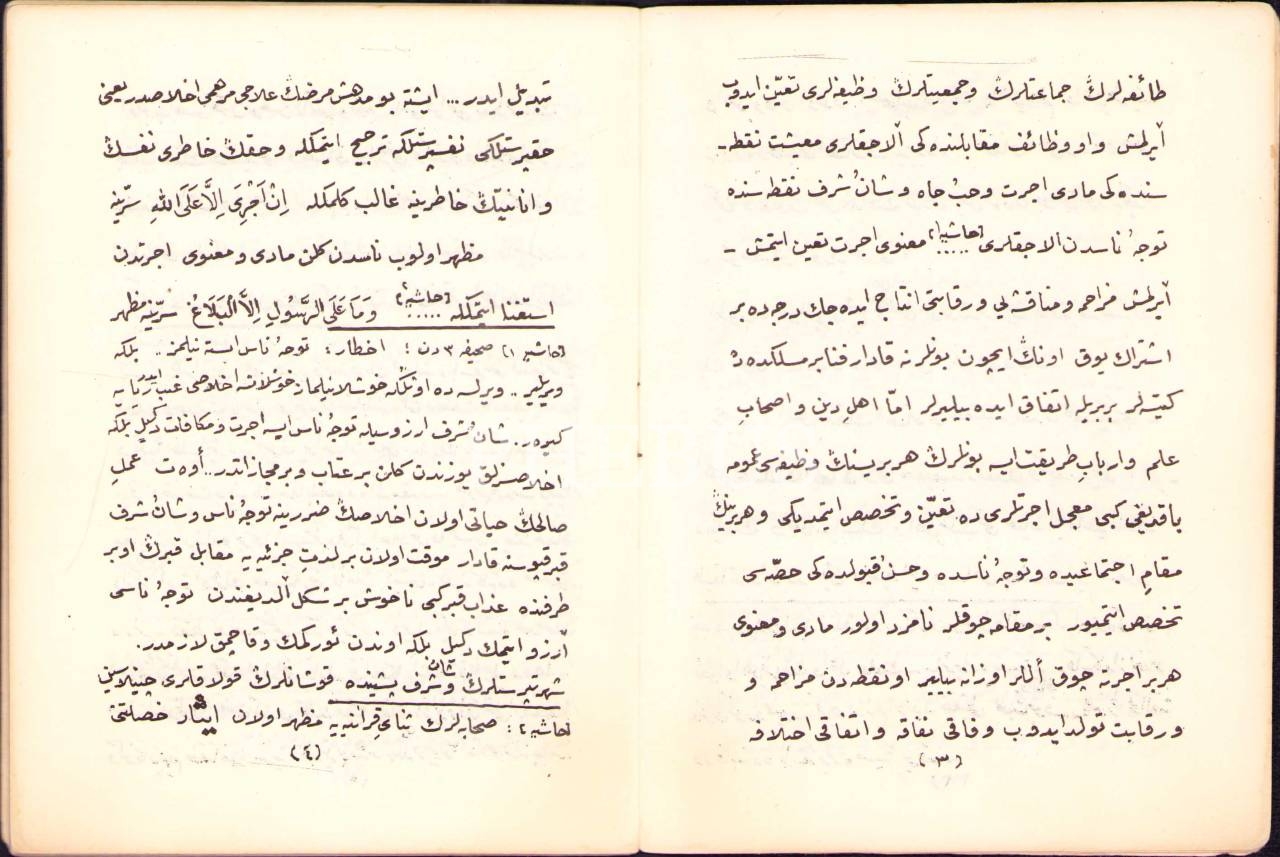 طائفه‌لرڭ جماعتلرڭ وجمعيتلرڭ وظيفه‌لرى تعيّن ايدوب
آيرلمش واو وظائف مقابلنده‌كى آلاجقلرى معيشت نقطه-
سنده‌كى مادى اجرت وحبّ جاه وشان‌ُ شرف نقطه‌سنده
توجهُ ناسدن آلاجقلرى [حاشيه ١] .....! معنوى اجرت تعين ايتمش -
آيرلمش مزاحمه ومناقشه‌يى ورقابتى انتاج ايده‌جك درجه‌ده بر
اشتراك يوق اونڭ ايچون بونلر نه قادار فنا بر مسلكده ده
كيتسه‌لر بربريله اتفاق ايده بيليرلر امّا اهلِ دين واصحابِ
علم واربابِ طريقت ايسه بونلرڭ هر بريسنڭ وظيفه‌سى عمومه
باقديغى كبى معجل اجرتلرى ده تعيّن وتخصص ايتمديكى وهربرينڭ
مقامِ اجتماعيده وتوجهُ ناسده وحسنُ قبولده‌كى حصّه‌سى
تخصص ايتميور بر مقامه چوقلر نامزد اولور مادى ومعنوى
هر بر اجرته چوق أللر اوزانه بيلير او نقطه‌دن مزاحمه و
ورقابت تولد ايدوب وفاقى نفاقه واتفاقى اختلافه
(٣)
تبديل ايدر... ايشته بو مدهش مرضڭ علاجى مرهمى اخلاصدر يعنى
حقپرستلكى نفسپرستلكه ترجيح ايتمكله وحقڭ خاطرى نفسڭ
وانانيتڭ خاطرينه غالب كلمكله اِنْ اَجْرِىَ اِلَّا عَلَى اللّٰهِ سرّينه
مظهر اولوب ناسدن كلن مادى ومعنوى اجرتدن
استغنا ايتمكله [حاشيه ٢] .....! وَمَا عَلَى الرَّسُولِ اِلَّا الْبَلَاغُ سرّينه مظهر
[حاشيه ١] صحيفه ٣ دن ! اخطار: توجهُ ناس ايسته‌نيلمز.. بلكه
ويريلير.. ويرلسه ده اونڭله خوشلانيلماز خوشلانسه اخلاصى غيب ايدر ريايه
كيره‌ر. شان‌ُ شرف ارزوسيله توجهُ ناس ايسه اجرت ومكافات دكيل بلكه
اخلاصسزلق يوزندن كلن بر عتاب وبر مجازاتدر.. أوه‌ت عملِ
صالحڭ حياتى اولان اخلاصڭ ضررينه توجهُ ناس وشان‌ُ شرف
قبر قپوسنه قادار موقت اولان بر لذتِ جزئيه‌يه مقابل قبرڭ اوبر
طرفنده عذابِ قبر كبى ناخوش بر شكل آلديغندن توجهُ ناسى
آرزو ايتمك دكيل بلكه اوندن ئوركمك وقاچمق لازمدر.
شهرتپرستلرڭ وشان شرف پشينده قوشانلرڭ قولاقلرى چينلاسين
[حاشيه ٢: صحابه‌لرڭ ثناى قرآنيه‌يه مظهر اولان ايثار خصلتنى
(٤)